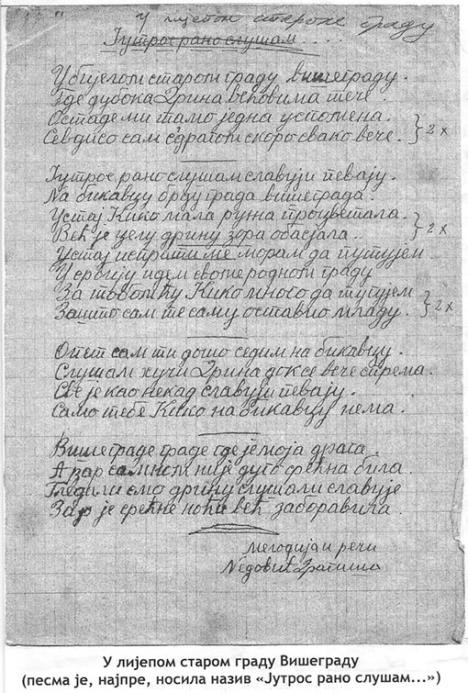 У лијепом староме граду
Јутрос рано слушам....
У бијелом старом граду вишеграду.
Где дубока Дрина вековима тече.
Остаде ми тамо једна успомена.
Севдисо сам с драгом скоро свако вече. } 2 x
Јутрос рано слушам славуји певају.
На бикавцу брду града вишеграда.
Устај Кико мала рујна процветала.
Већ је целу дрину зора обасјала. } 2 x
Устај испрати ме морам да путујем
У србију идем своме родном граду
За тобом ћу Кико много да тугујем
Зашто сам те саму оставио младу. } 2 x
Опет сам ти дошо седим на бикавцу.
Слушам хучи Дрина док се вече спрема.
Све је као некад славуји певају.
Само тебе Кико на бикавцу нема.
Вишеграде граде где је моја драга
А зар самном није дуго срећна била.
Гледали смо дрину слушали славује
Зар је срећне ноћи већ заборавила.
мелодија и речи
Недовић Драгиша
У лијепом старом граду Вишеграду
(песма је, најпре, носила назив «Јутрос рано слушам...»)